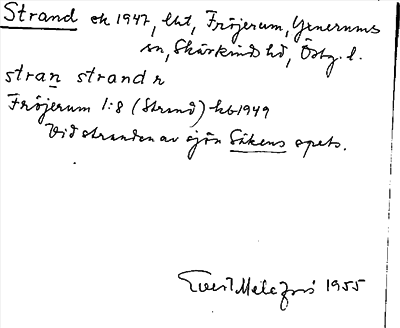 Strand ek 1947, lht, Fröjerum, Yxnerums
sn, Skärkinds hd, Östg. l.
stran strand n
Fröjerum 1:8 (Strand) kb 1949
Vid stranden av sjön Såkens spets.
1955